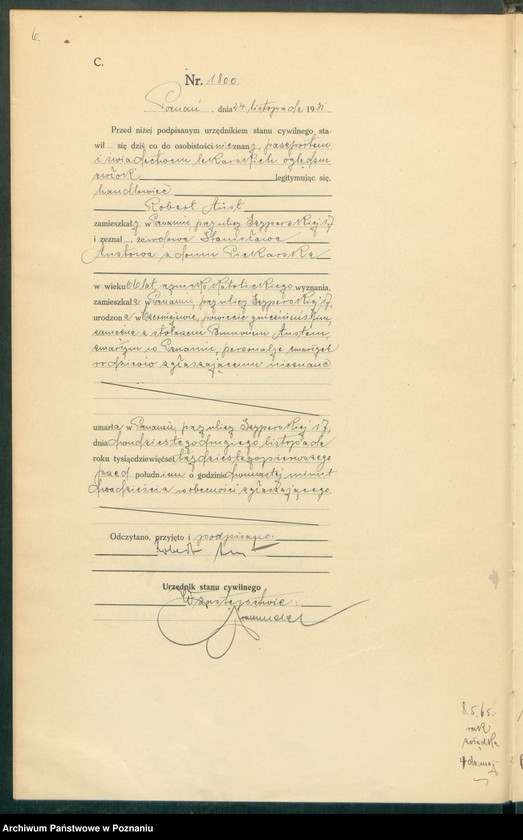 6.
C.
Nr. 1800.
Poznań, dnia 24 listopada 1931
Przed niżej podpisanym urzędnikiem stanu cywilnego, sta-
wił się dziś co do osobistości nieznany, paszportem
i świadectwem lekarskich oględzin
zwłok legitymując się,
handlowiec
Robert Aust
zamieszkały w Poznaniu, przy ulicy Szyperskiej 17,
i zeznał, że wdowa Stanisława
Austowa z domu Piekarska
w wieku 66 lat, rzymsko katolickiego wyznania,
zamieszkała w Poznaniu, przy ulicy Szyperskiej 17,
urodzona w powiecie gnieźnieńskim,
zamężna z stolarzem Brunonem Austem,
zmarłym w Poznaniu, personalje zmarłych
rodziców zgłaszającemu nieznane
umarła w Poznaniu, przy ulicy Szyperskiej 17,
dnia dwudziestego drugiego listopada
roku tysiącdziewięćset trzydziestego pierwszego
przed południem o godzinie dwunastej minut
dwadzieścia w obecności zgłaszającego.
Odczytano, przyjęto i podpisano.
Robert Aust
Urzędnik stanu cywilnego
W zastępstwie:
8.5.65.
Archiwum Państwowe w Poznaniu